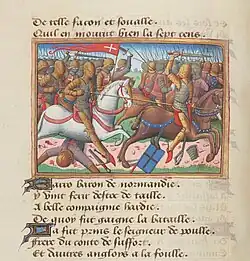 De telle facon et fouulle.
Quil en mourut bien la sept cens.
baron de normandie.
Y vint ferir destoc de taille.
A belle compaignie hardie.
De quoy fut gaigne la bataille.
La fut prins le seigneur de
frere du conte de suffort.
Et dautres anglois a la foulle.